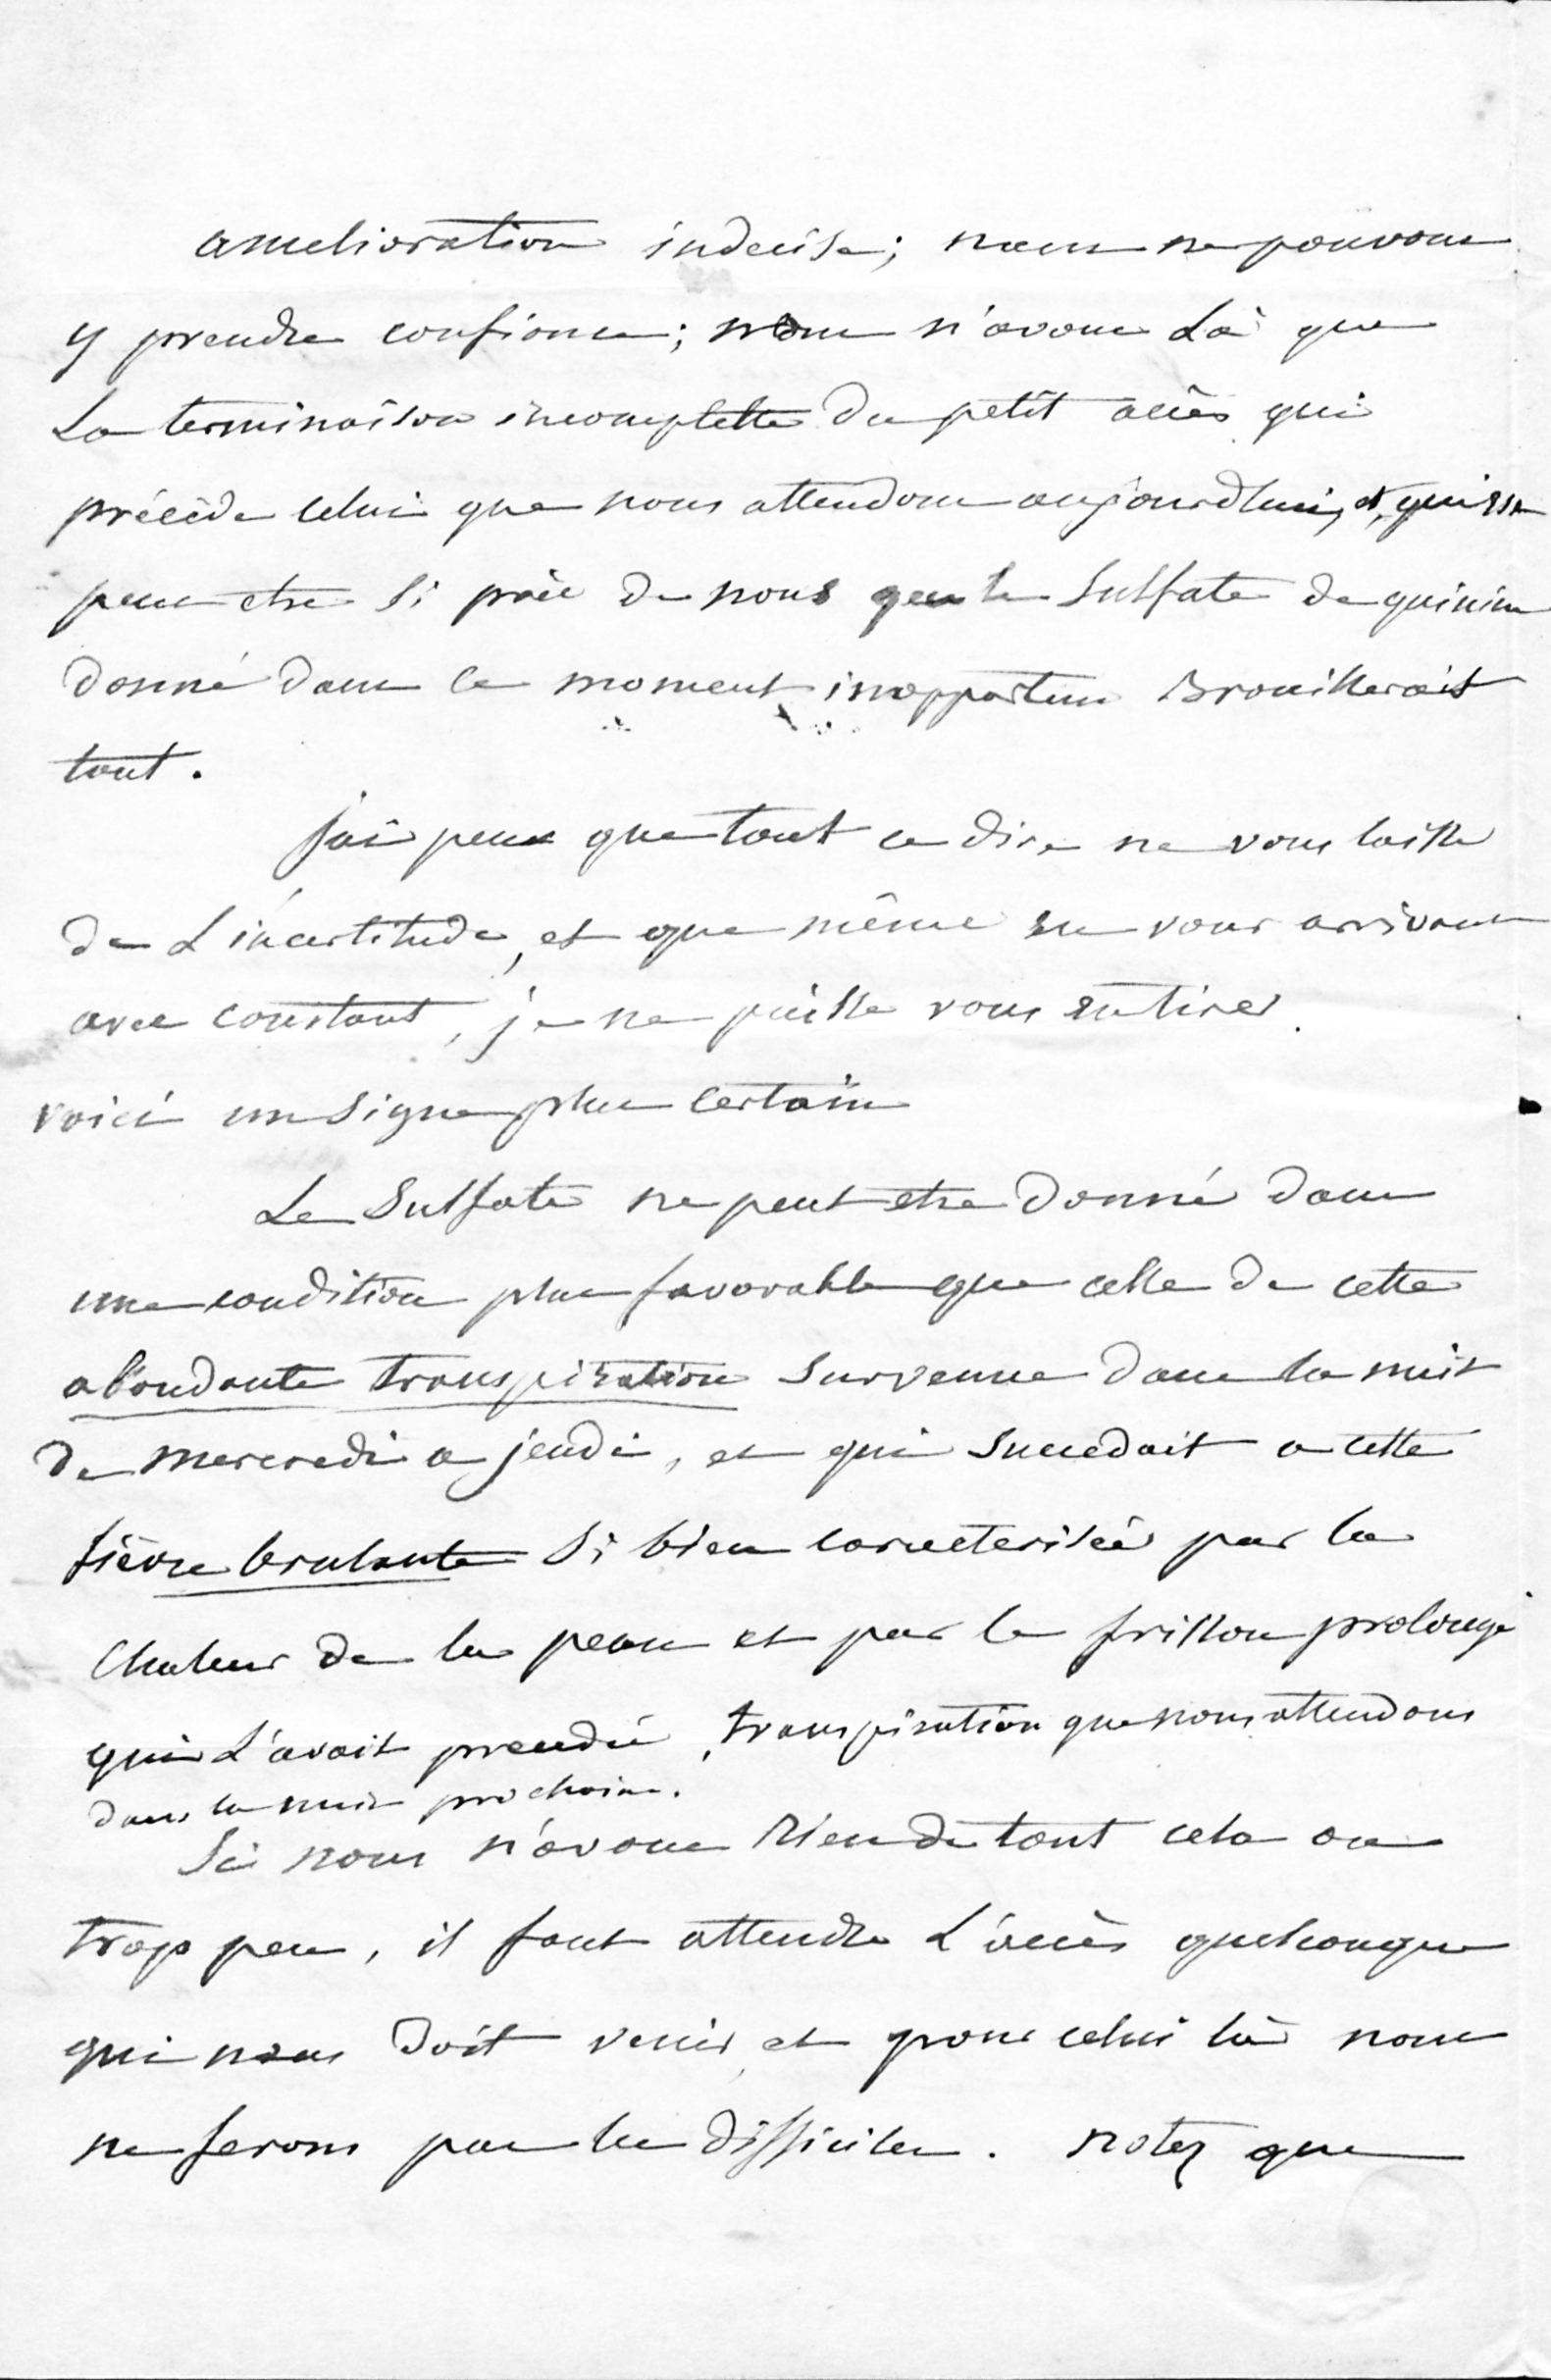 amelioration indecise; nous ne pouvons
y prendre confiance; nous n'avons Là que
La terminaison incomplette du petit accès qui
précède celui que nous attendons aujourdhui, et qui est
peut etre si près de nous que le Sulfate de quinine
donné dans ce moment inopportun Brouillerait
tout.
j'ai peur que tout ce dire ne vous laisse
de L'incertitude, et que même en vous arrivant
avec constant, je ne puisse vous en tirer.
voici un signe plus certain
Le Sulfate ne peut etre donné dans
une condition plus favorable que celle de cette
abondante transpiration survenue dans la nuit
de mercredi a jeudi, et qui succedait a cette
fièvre brulante si bien caracterisée par la
Chaleur de la peau et par le frisson prolongé
qui L'avait precedée, transpiration que nous attendons
dans la nuit prochaine.
Si nous n'avons rien de tout cela ou
trop peu, il faut attendre L'accès quelconque
qui nous doit venir et pour celui là nous
ne serons pas les difficiles. notez que